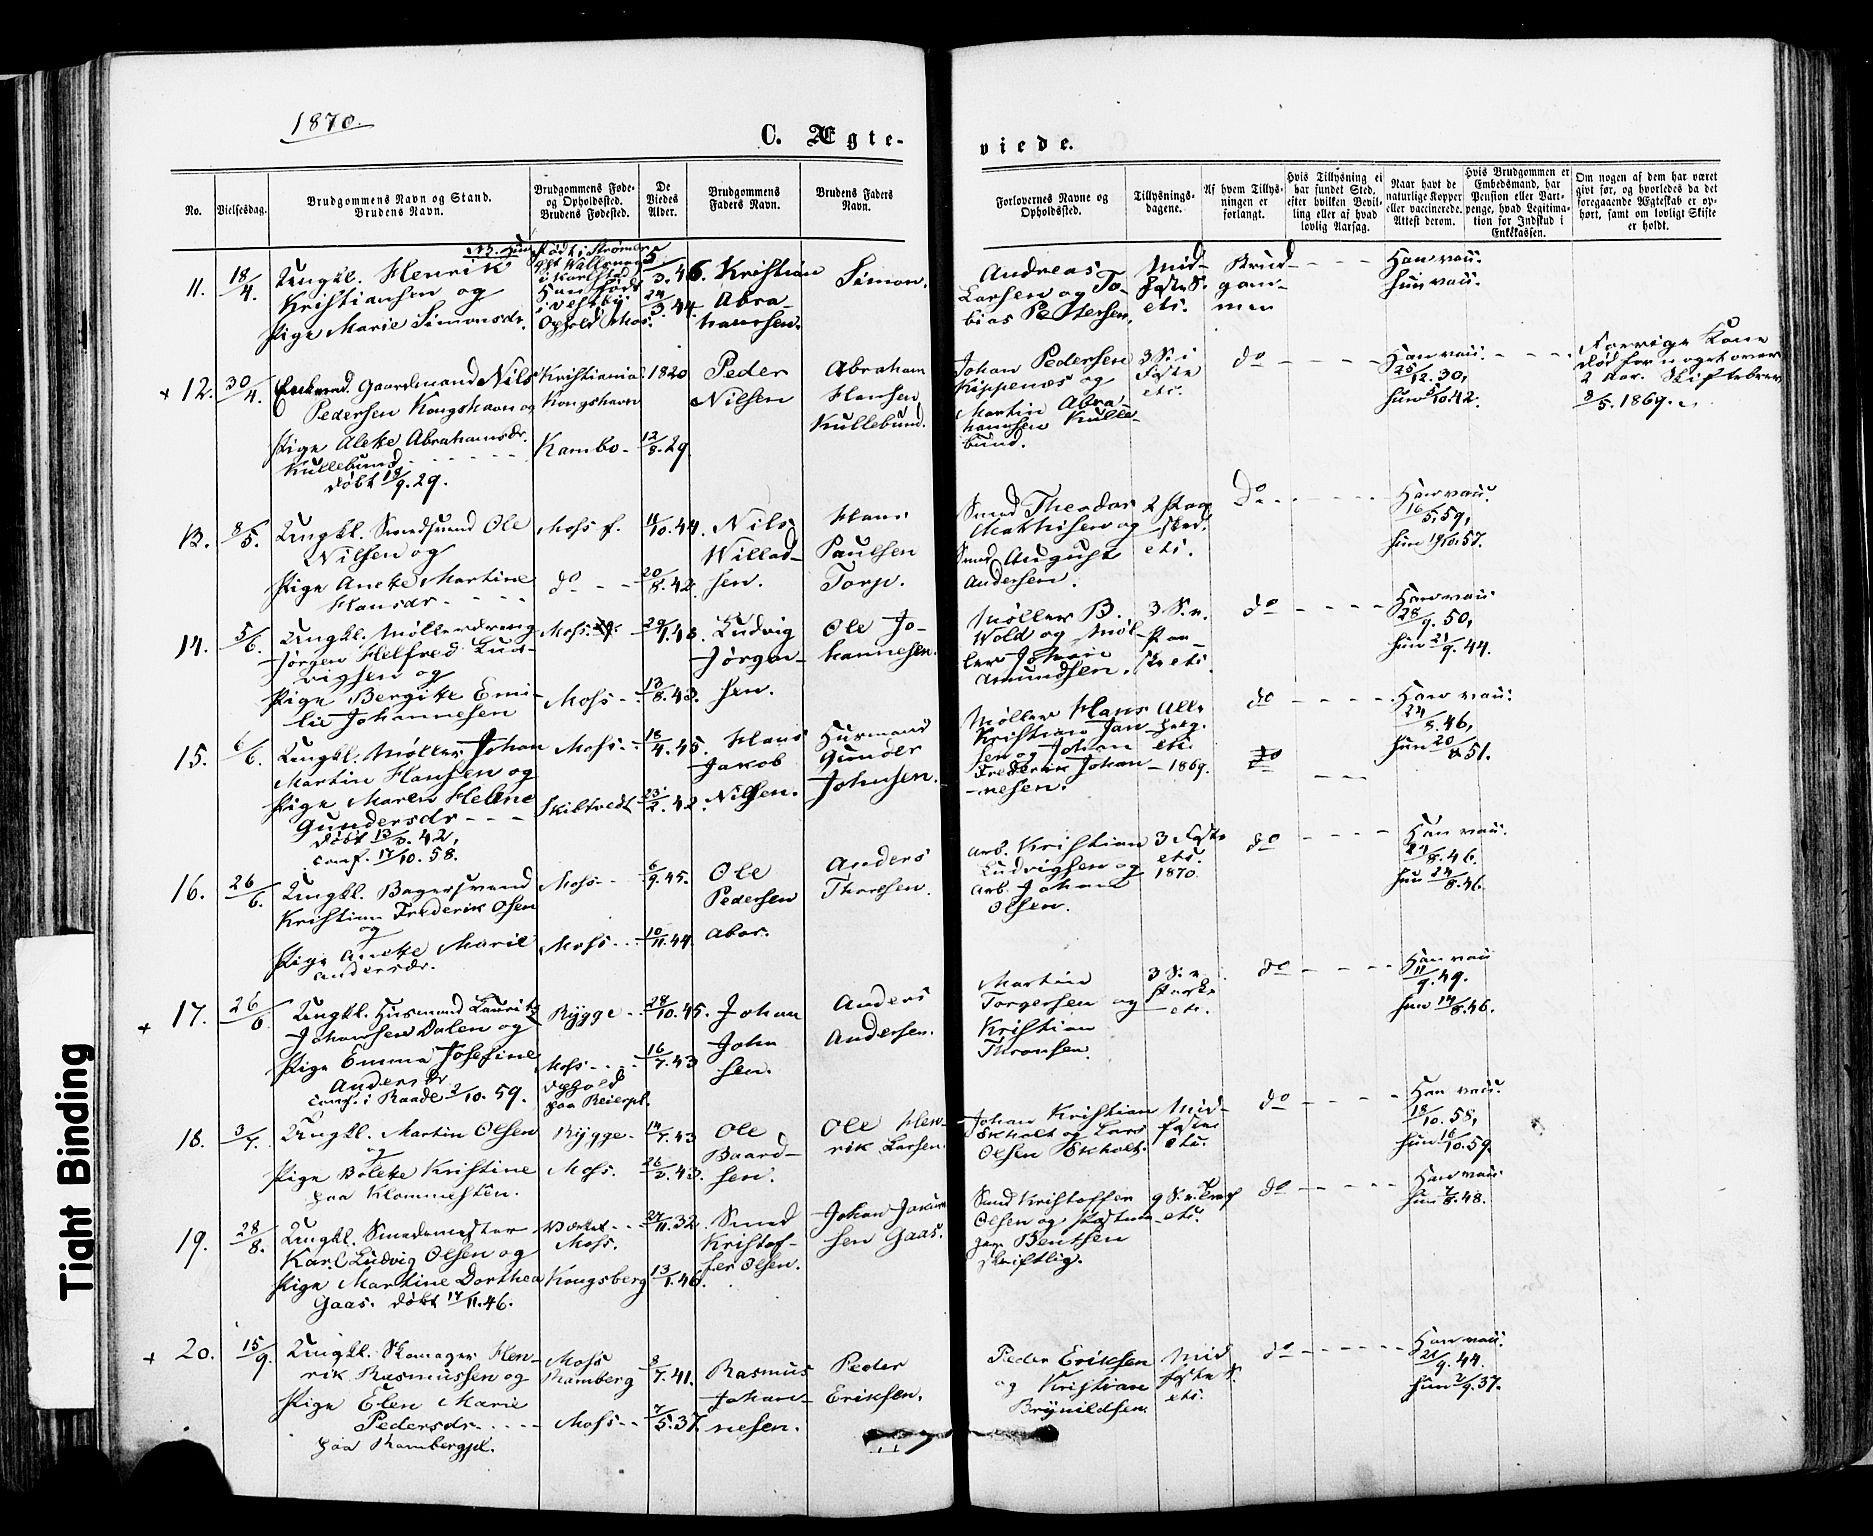 1870.
C. Ægte-
viede.
No.
Vielsesdag.
Brudgommens Navn og Stand.
Brudens Navn.
Brudgommens Føde-
og Opholdssted.
Brudens Fødested.
De
Viedes
Alder.
Brudgommens
Faders Navn.
Brudens Faders
Navn.
Forlovernes Navne og
Opholdssted.
Tillysnings-
dagene.
Af hvem Tillys-
ningen er
forlangt.
Hvis Tillysning ei
har fundet Sted,
efter hvilken Bevil-
ling eller af hvad
lovlig Aarsag.
Naar havt de
naturlige Kopper
eller vaccinerede.
Attest derom.
Hvis Brudgommen er
Embedsmand, har
Pension eller Vart-
penge, hvad Legitima-
tion for Indskud i
Enkekassen.
Om nogen af dem har været
givt før, og hvorledes da det
foregaaende Ægteskab er op-
hørt, samt om lovligt Skifte
er holdt.
11. 18/4. Ungkl. Henrik
Kristiansen og
Pige Marie Simonsdr.
Ophold Moss.
3.46.
24/3.44.
Kristian
Abra-
hamsen.
Simon.
Andreas
Larsen og To-
bias Pettersen.
Mid-
faste S.
etc.
Brud-
gom-
men
Han vacc.
hun vacc.
+ 12. 30/4. Enkemd. Gaardmand Nils
Pedersen Kongshavn og
Pige Aleke Abrahamsdr.
Kullebund
døbt 18/9.29.
Kristiania
Kongshavn
Kambo -
1820
12/8.29.
Peder
Nilsen
Abraham
Hansen
Kullebund.
Johan Pedersen
Kippenæs og
Martin Abra-
hamsen Kulle-
bund.
3 S. i
Faste
etc.
do
Han vacc.
25/12.30,
hun 5/10.42.
Forrige Kone
død for noget over
2 Aar. Skiftebrev
8/5.1869.
13. 8/5. Ungkl. Smedsvend Ole
Nilsen og
Pige Aneke Martine
Hansdr
Moss f.
do
11/10.44.
20/8.42.
Nils
Willad-
sen.
Hans
Paulsen
Torp.
Smed Theodor
Mathisen og
Smed August
Andersen.
2 Paa-
sked.
etc.
Do
Han vacc.
16/5.59,
hun 19/10.57.
14. 5/6. Ungkl. Møllerdreng
Jørgen Helfred Lud-
vigsen og
Pige Bergite Emi-
lie Johannesen
Moss.
Moss -
29/1.48.
13/8.43.
Ludvig
Jørgen-
sen.
Ole Jo-
hannesen.
Møller B.
Wold og Møl-
ler Johan
Amundsen.
3 S. e.
Paa-
ske etc.
do
Han vacc.
28/9.50,
hun 21/9.44.
15. 6/6. Ungkl. Møller Johan
Martin Hansen og
Pige Maren Helene
Gundersdr
døbt 13/3.42,
conf. 17/10.58.
Moss -
Skibtvedt
18/4.45.
23/2.42.
Hans
Jakob
Nilsen.
Husmand
Gunder
Johnsen.
Møller Hans
Kristian Jan-
sen og Johan
Frederik Johan-
nesen.
Alle-
helg.
etc.
1869.
do
Han vacc.
24/8.46,
16. 26/6. Ungkl. Bagersvend
Kristian Frederik Olsen
og
Pige Aneke Marie
Andersdr.
Moss -
Moss -
6/9.45.
10/11.44.
Ole
Pedersen
Abor.
Anders
Thoresen.
Arb. Kristian
Ludvigsen og
Arb. Johan
Olsen.
3 Faste
etc.
1870.
do
Han vacc.
24/8.46.
hun 24/8.46.
+ 17. 26/6 Ungkl. Husmand Laurits
Johansen Dalen og
Pige Emma Josefine
Andersdr
conf. i Raade 2/10.59.
Rygge -
Moss -
Ophold
paa Reierpl.
28/10.45.
16/7.43
Johan
John-
sen.
Anders
Andersen.
Martin
Torgersen og
Kristian
Thronsen.
3 S. e.
Paaske
etc.
do
Han vacc
11/9.49.
hun 14/8.46.
18. 3/7. Ungkl. Martin Olsen
og
Pige Bolete Kristine
paa Klommesten.
Rygge -
Moss.
14/7.43
26/3.43.
Ole
Baard-
sen.
Ole Hen-
rik Larsen.
Johan Kristian
Ekholt og Lars
Olsen Ekholt.
Mid-
faste
etc.
do
Han vacc.
18/10.58,
hun 16/10.59.
19. 28/8. Ungkl. Smedemester
Karl Ludvig Olsen og
Pige Martine Dorthea
Gaas. døbt 17/11.46.
Værket -
Moss.
Kongsberg
27/11.32.
13/1.46.
Smed
Kristof-
fer Olsen.
Johan Jakob-
sen Gaas.
Smed Kristoffer
Olsen og
Bentsen
skriftlig.
9 S. e.
etc.
do
Han vacc.
hun 7/8.48.
+ 20. 15/9. Ungkl. Skomager Hen-
rik Rasmussen og
Pige Elen Marie
Pedersdr.
paa Rambergpl.
Moss
Ramberg
Moss -
8/7.41.
7/5.37.
Rasmus
Johan-
nesen.
Peder
Eriksen.
Peder Eriksen
og Kristian
Brynildsen.
Mid
faste S.
etc.
do
Han vacc.
21/9.44.
hun 2/9.37.
Tight Binding